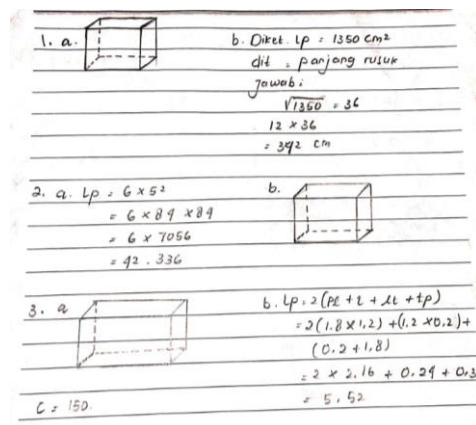 1. a.
b. Diket. Lp = 1350 cm²
dit = panjang rusuk
Jawab:
√1350 = 36
12 × 36
= 392 cm
2. a. Lp = 6 × 5²
= 6 × 84 × 84
= 6 × 7056
= 42.336
b.
3. a
b. Lp = 2 (pl + l + lt + tp)
= 2 (1.8 × 1,2) + (1,2 × 0,2) +
(0,2 + 1,8)
= 2 × 2,16 + 0,24 + 0,3
= 5,52
C = 150.